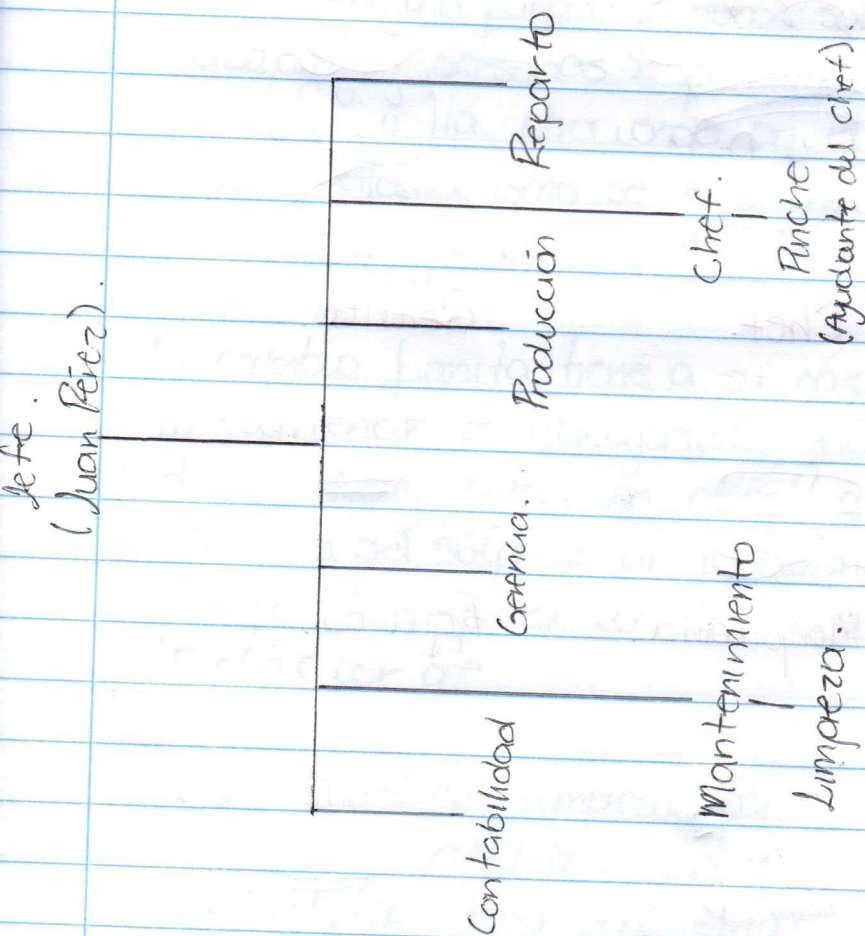 Jefe.
(Juan Pérez).
Contabilidad
Gerencia.
Producción
Reparto
Mantenimiento
Chef.
Limpieza.
Pinche
(Ayudante del Chef).